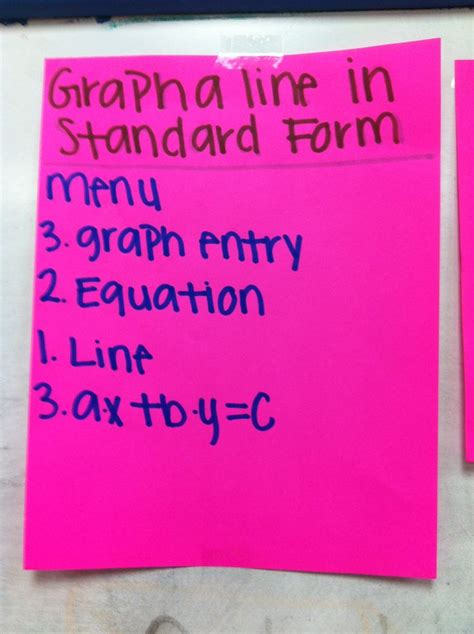 Graph a line in
Standard Form
menu
3. graph entry
2. Equation
1. Line
3. a·x+b·y=C